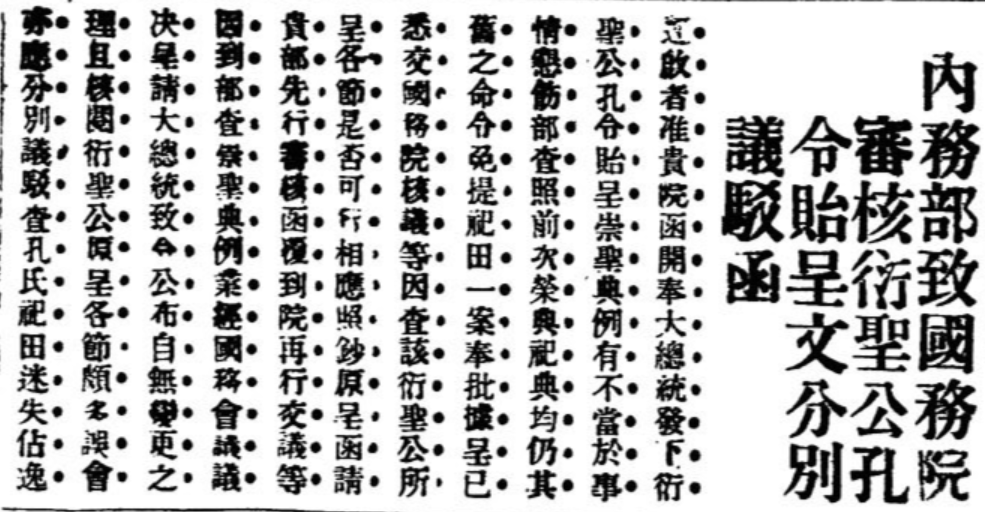 內務部致國務院
審核衍聖公孔
令貽呈文分別
議駁函
逕啟者准貴院函開奉大總統發下衍
聖公孔令貽呈崇聖典例有不當於事
情懇飭部查照前次榮典祀典均仍其
舊之命令免提祀田一案奉批據呈已
悉交國務院核議等因查該衍聖公所
呈各節是否可行相應照鈔原呈函請
貴部先行審核函復到院再行交議等
因到部查崇聖典例業經國務會議議
決呈請大總統致令公布自無變更之
理且核閱衍聖公原呈各節頗多誤會
亦應分別議駁查孔氏祀田迷失佔逸